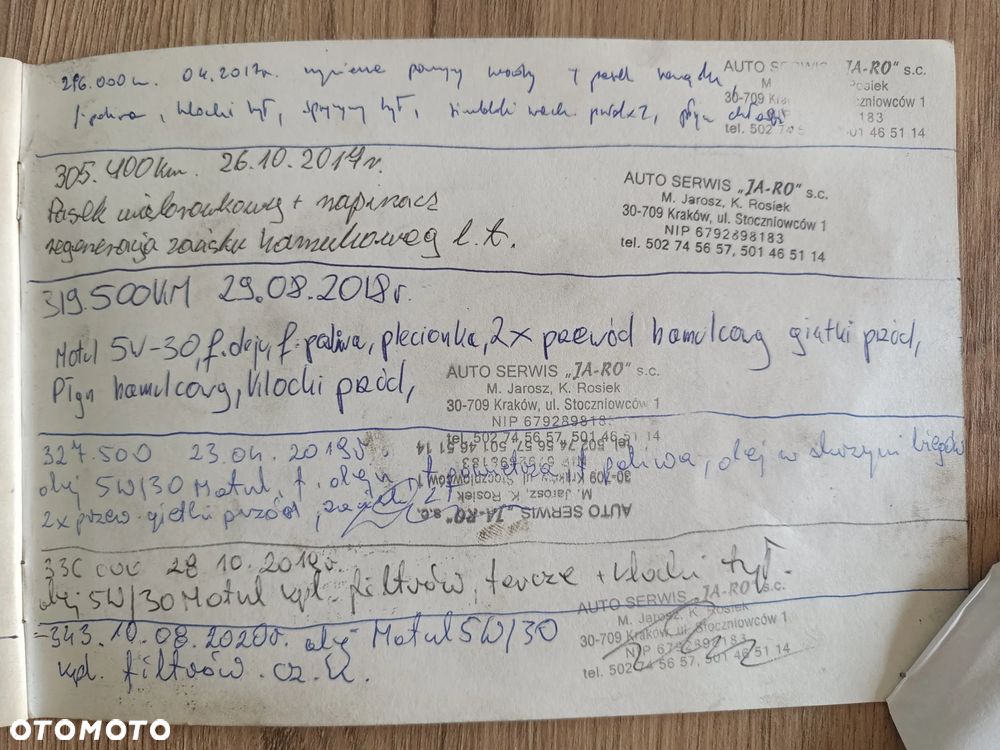 296.000km. 04.2017r. wymiana pompy wody + pasek
f. paliwa, klocki tył, sprężyny tył, przód x 2, płyn
AUTO SERWIS „JA-RO" s.c.
M. Rosiek
30-709 Kra Stoczniowców 1
183
tel. 502 74 5 01 46 51 14
305.400km. 26.10.2017r.
Pasek wielorowkowy + napinacz
regeneracja zacisku hamulcoweg l.t.
AUTO SERWIS „JA-RO" s.c.
M. Jarosz, K. Rosiek
30-709 Kraków, ul. Stoczniowców 1
NIP 6792898183
tel. 502 74 56 57, 501 46 51 14
319.500KM 29.08.2018r.
Motul 5W-30, f. oleju, f. paliwa, plecionka, 2x przewód hamulcowy giętki przód,
Płyn hamulcowy, klocki przód,
AUTO SERWIS „JA-RO" s.c.
M. Jarosz, K. Rosiek
30-709 Kraków, ul. Stoczniowców 1
NIP 679289818
tel. 502 74 56 57, 501 46 51 14
327.500 23.04.2019r.
olej 5W/30 Motul, f. oleju, f. powietrza, f. paliwa, olej w skrzyni biegów
2x przew. giętki przód,
tel. 502 74 56 57, 501 46 51 14
NIP 6792898183
30-709 Kraków, ul. Stoczniowców 1
M. Jarosz, K. Rosiek
AUTO SERWIS „JA-RO" s.c.
336 000 28.10.2019r.
olej 5W/30 Motul kpl. filtrów, tarcze + klocki tył.
343. 10.08.2020r. olej Motul 5W/30
kpl. filtrów. cz. k.
AUTO SERWIS „JA-RO" s.c.
M. Jarosz, K. Rosiek
30-709 Kraków, ul. Stoczniowców 1
NIP 6792898183
tel. 502 74 56 57, 501 46 51 14
OTOMOTO